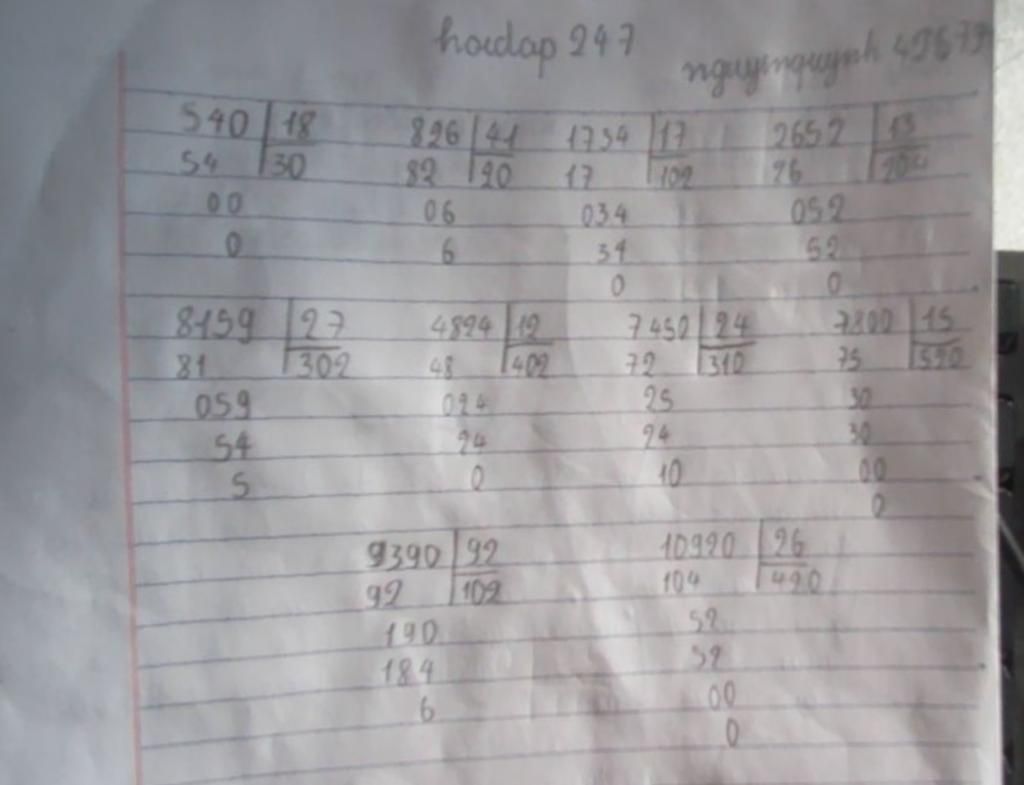 hoidap 247
nguyenquynh 49679
540 18 826 41 1734 17 2652 13
54 30 82 20 17 102 26 204
00 06 034 052
0 6 34 52
0 0
8159 27 4824 12 7450 24 7800 15
81 302 48 402 72 310 75 520
059 024 25 30
54 24 24 30
5 0 10 00
0
9390 92 10920 26
92 102 104 420
190 52
184 52
6 00
0